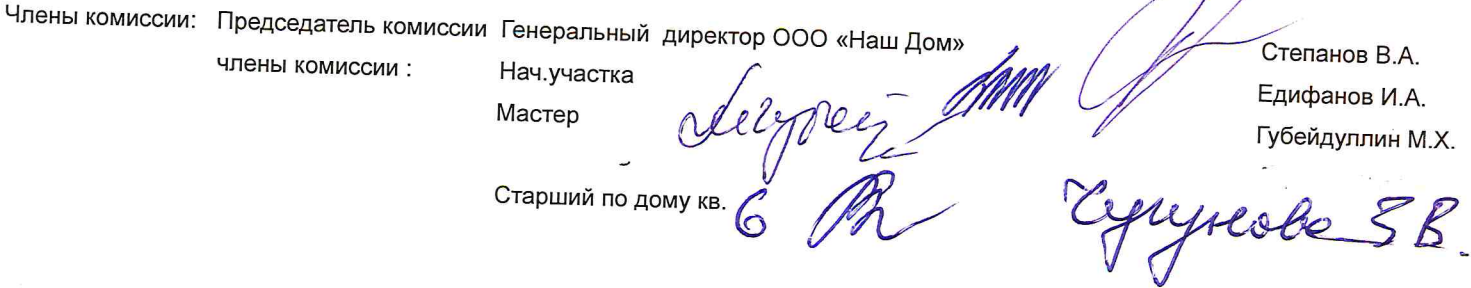 Члены комиссии: Председатель комиссии Генеральный директор ООО «Наш Дом» Степанов В.А.
члены комиссии : Нач.участка Едифанов И.А.
Мастер Губейдуллин М.Х.
Старший по дому кв. 6 Чугунова З В.